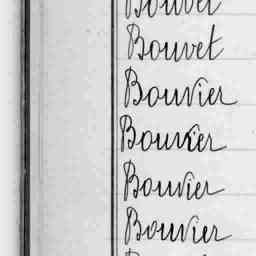 Bouvet
Bouvet
Bouvier
Bouvier
Bouvier
Bouvier